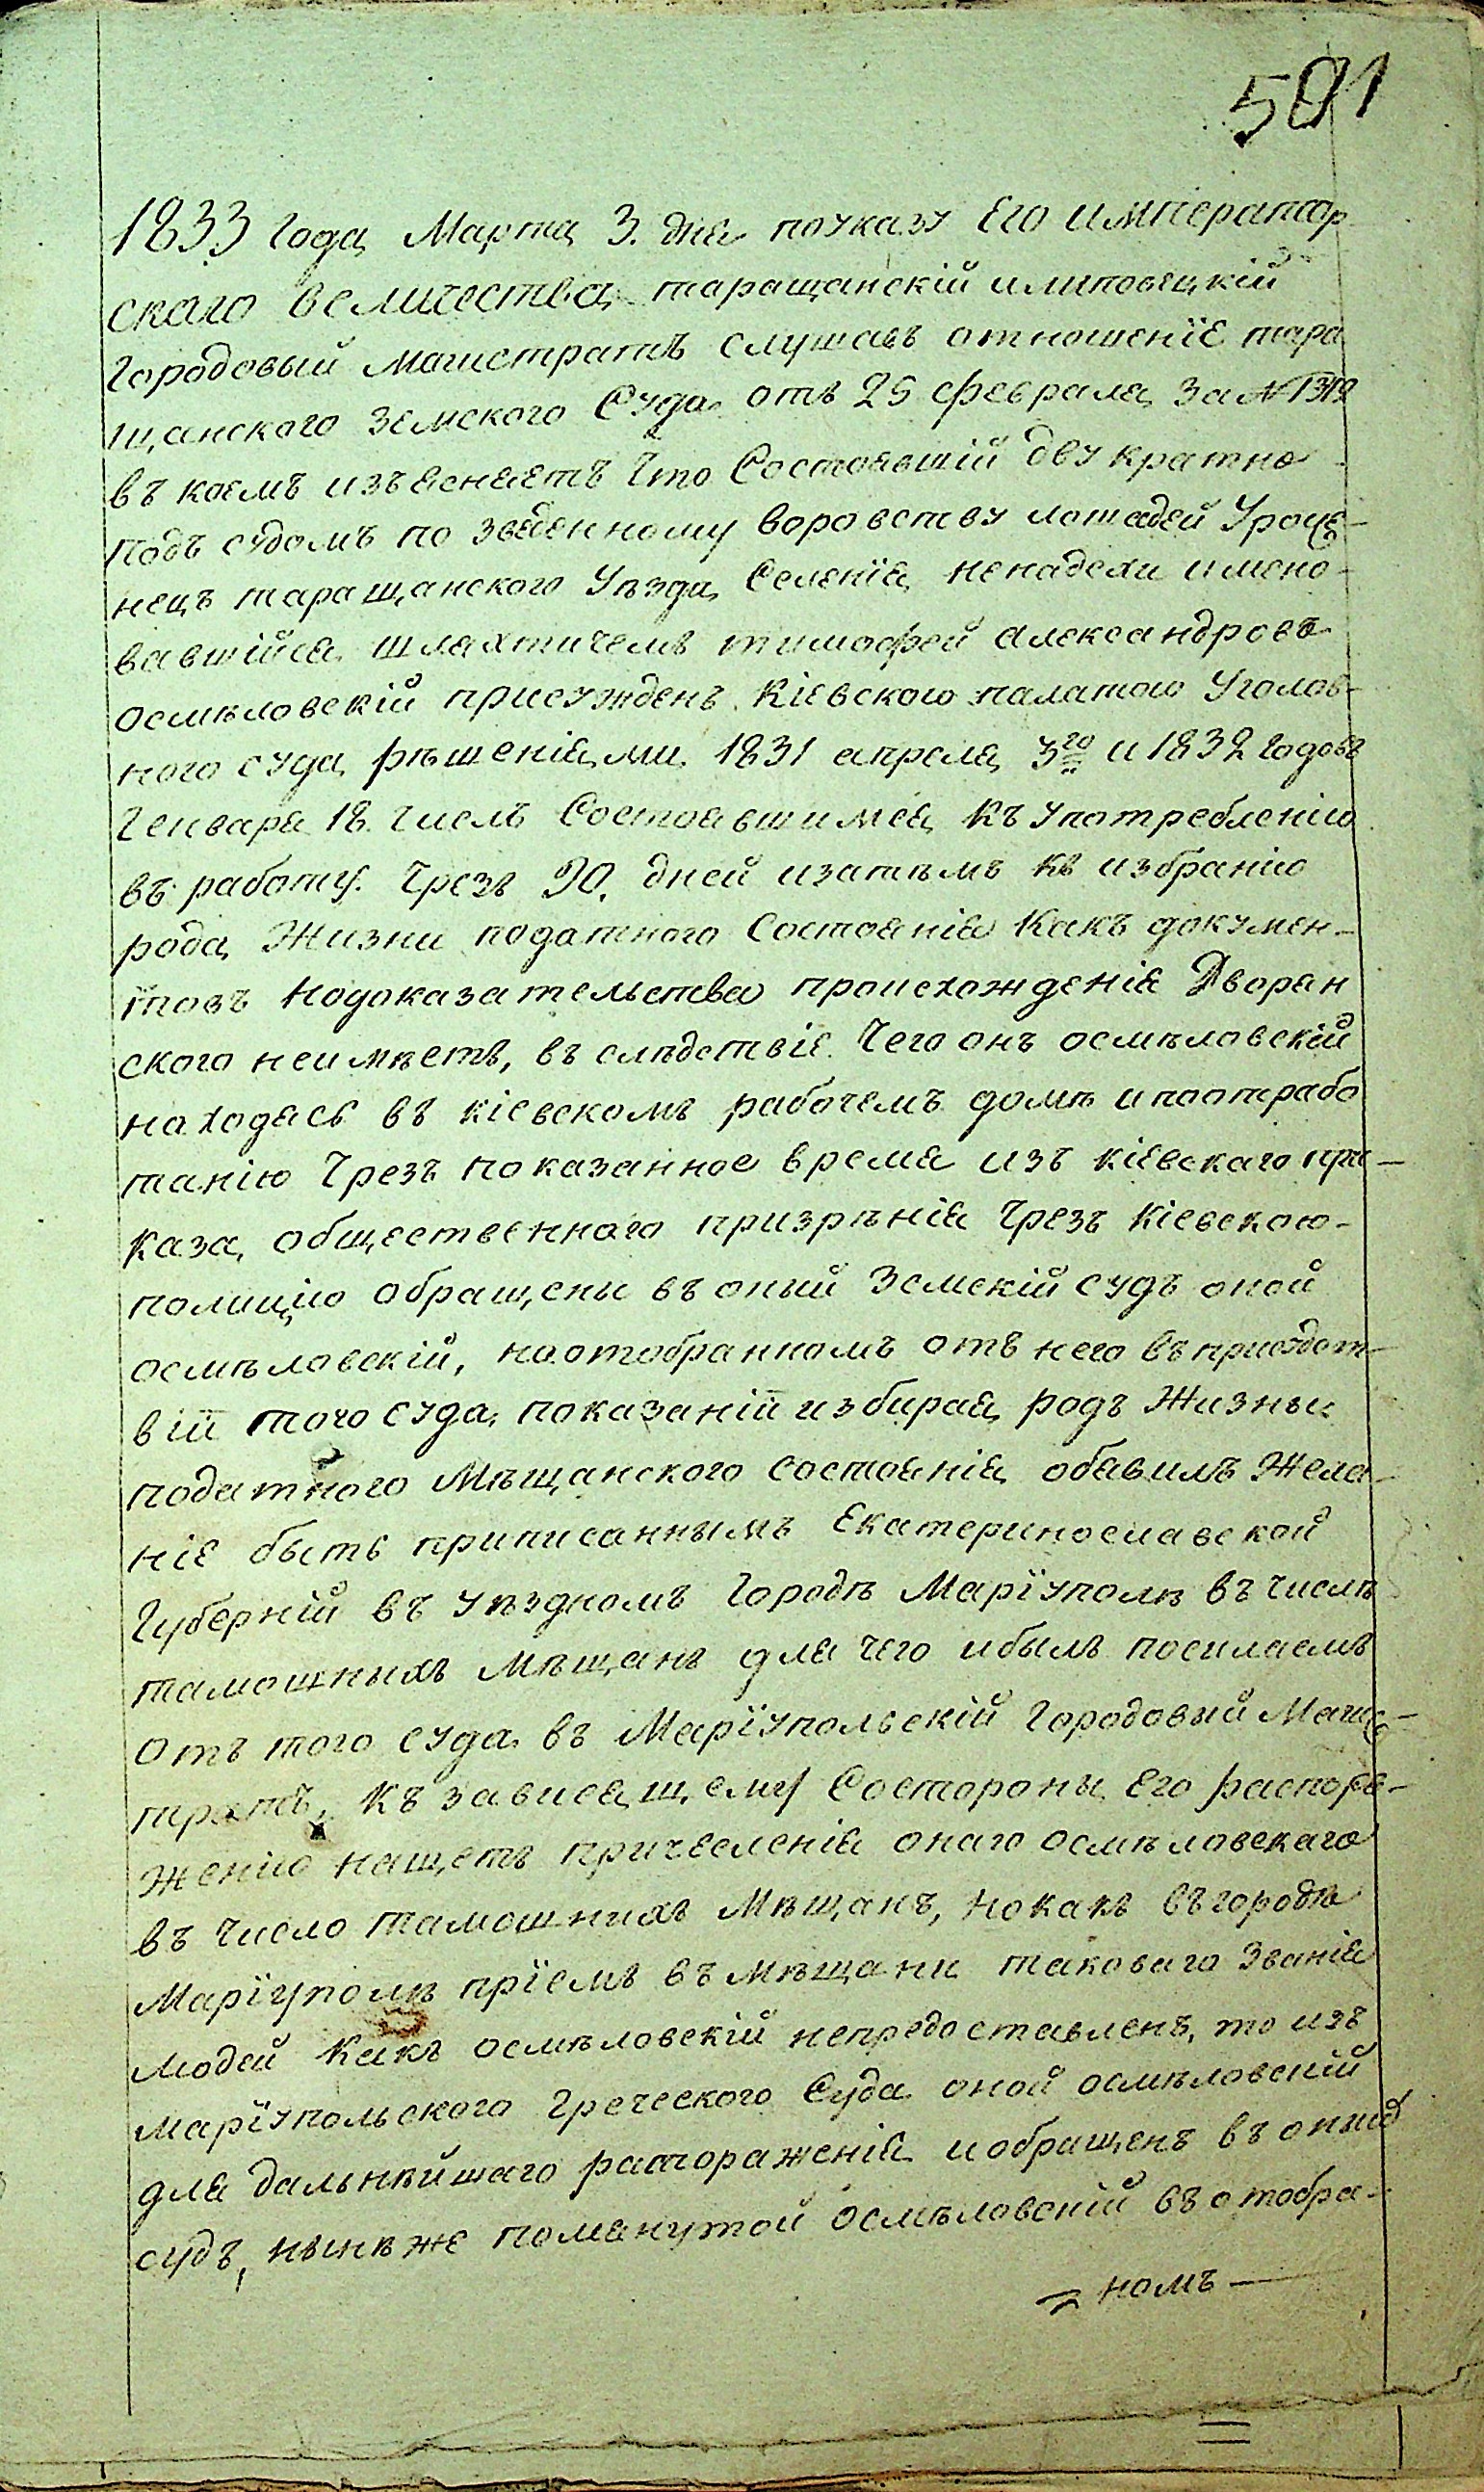 501
1833 года Марта 3. дня по указу Его император
скаго величества таращанскій и липовецкій
Городовый магистратъ слушавъ отношеніе тара
щанского земского Суда отъ 25 февраля за №1319
въ коемъ изъясняетъ что Состоявшій двукратно
подъ судомъ по зведенному воровству лошадей Уроже-
нецъ таращанского Уѣзда Селенія ненадехи имено-
вавшійся шляхтичемъ тимофей александровъ
осмѣловскій присужденъ Кіевскою палатою Уголов-
ного суда рѣшеніями 1831 апреля 3го и 1832 годовъ
Генваря 18. числъ Состоявшимся къ употребленію
въ работу. Чрезъ 90. дней изатѣмъ къ избранію
рода Жизни податного Состоянія Какъ докумен-
товъ Нодоказательства происхожденія Дворян
ского неимѣетъ, въ слѣдствіе Чего онъ осмѣловскій
находясь въ кіевскомъ рабочемъ домѣ и поотрабо
танію Чрезъ показанное время изъ кіевскаго при-
каза общественного призрѣнія Чрезъ Кіевскою-
полицію обращены въ оный Земскій судъ оной
осмѣловскій, наотобранномъ отъ него въ присудст-
віи того суда, показаніи избирая родъ Жизны
податного Мѣщанского состоянія обявилъ Жела-
ніе быть приписаннымъ Екатеринославской
Губерній въ уѣздномъ Городѣ Маріуполѣ въ числѣ
тамошныхъ Мѣщанъ для чего ибылъ посилаемъ
Отъ того суда въ Маріупольскій Городовый Магис-
тратъ, къ зависящему Состороны Его распоря-
женію нащетъ причесленія онаго осмѣловскаго
въ Число тамошнихъ Мѣщанъ, но какъ въ городѣ
Маріуполѣ пріемъ въ мѣщани таковаго Званія
людей Какъ осмѣловскій непредоставленъ, то изъ
маріупольского Греческого Суда оной осмѣловскій
для дальнѣйшаго распоряженія и обращенъ въ оный
судъ, нынѣ же помянутой осмѣловскій въ отобра-
номъ